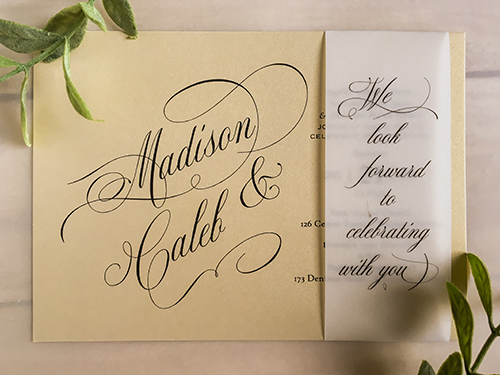 Madison
&
Caleb
&
126 Ce
173 Den
We
look
forward
to
celebrating
with you